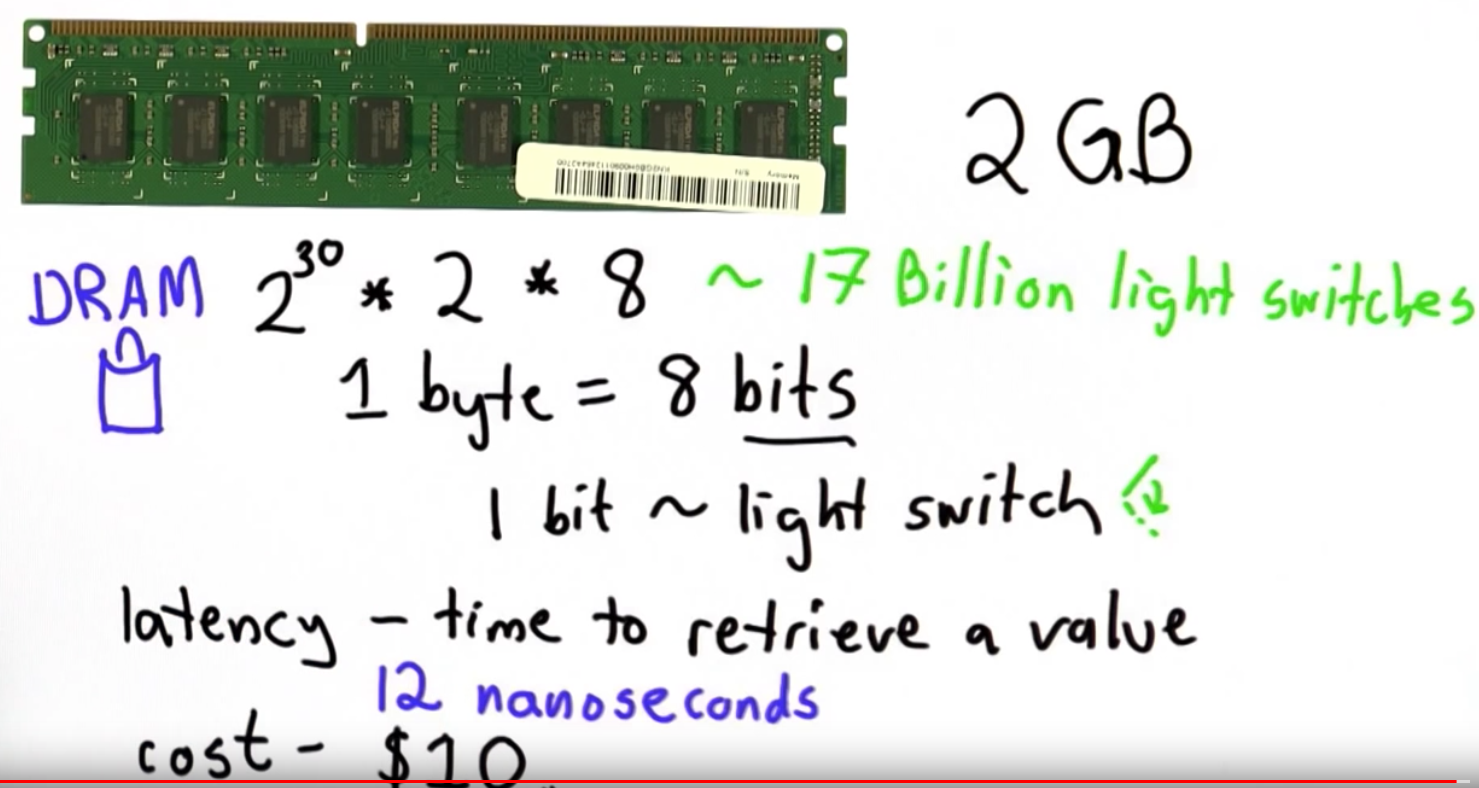 2 GB
DRAM 2^30 * 2 * 8 ~ 17 Billion light switches
1 byte = 8 bits
1 bit ~ light switch
latency - time to retrieve a value
12 nanoseconds
cost - $10
Memory S/N